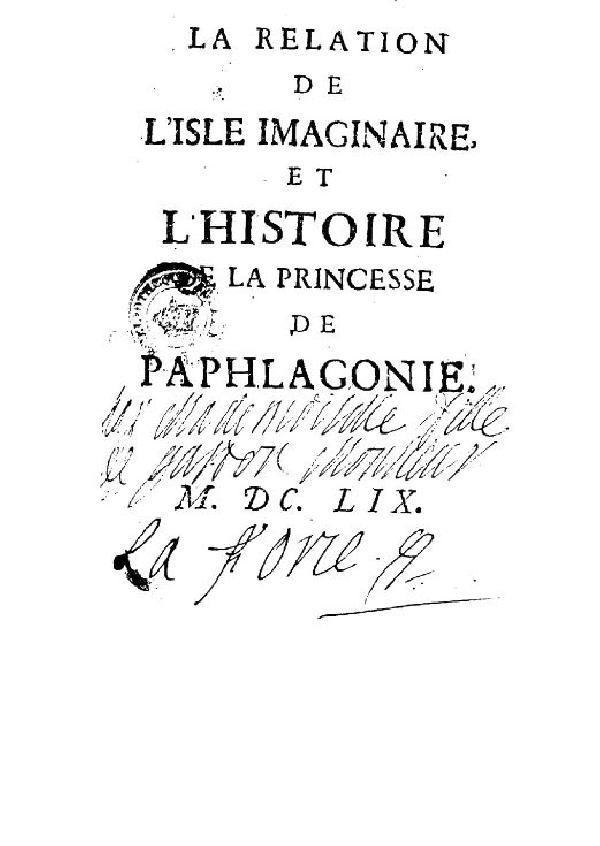 LA RELATION
DE
L'ISLE IMAGINAIRE,
ET
L'HISTOIRE
DE LA PRINCESSE
DE
PAPHLAGONIE.
par Mademoiselle fille
de gaston Monsieur
M. DC. LIX.
La